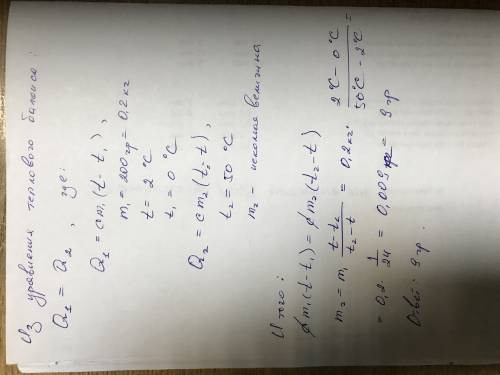 Из уравнения теплового баланса:
Q₁ = Q₂, где:
Q₁ = cm₁(t - t₁),
m₁ = 200гр = 0,2кг
t = 2 °C
t₁ = 0 °C
Q₂ = cm₂(t₂ - t),
t₂ = 50 °C
m₂ - искомая величина
Итого:
cm₁(t-t₁) = cm₂(t₂-t)
m₂ = m₁ (t-t₂)/(t₂-t) = 0,2кг · (2°C - 0°C)/(50°C - 2°C) =
= 0,2 · 1/24 = 0,009 = 9гр
Ответ: 9 гр.